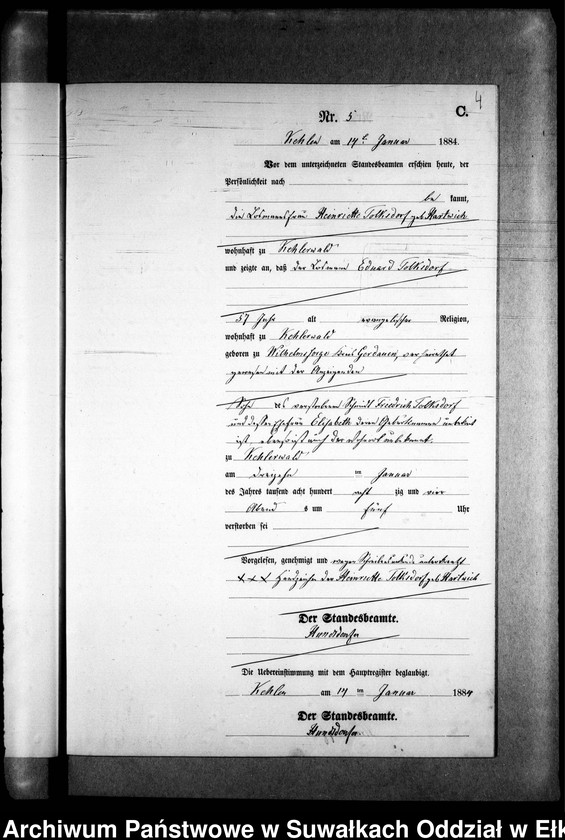 4
Nr. 5 C.
Kehlen am 14t Januar 1884.
Vor dem unterzeichneten Standesbeamten erschien heute, der
Persönlichkeit nach
be kannt,
die Losmannsfrau Heinriette Tolksdorf geb. Hartwich
wohnhaft zu Kehlerwald
und zeigte an, daß der Losmann Eduard Tolksdorf
57 Jahr alt evangelischer Religion,
wohnhaft zu Kehlerwald
geboren zu Wilhelmsorge Kreis Gerdauen, verheirathet
gewesen mit der Anzeigenden
Sohn des verstorbenen Schmidt Friedrich Tolksdorf
und dessen Ehefrau Elisabeth deren Geburtsname unbekannt
ist ebenso ist auch der unbekannt.
zu Kehlerwald
am dreizehn ten Januar
des Jahres tausend acht hundert acht zig und vier
Abend s um fünf Uhr
verstorben sei
Vorgelesen, genehmigt und wegen unterkreuzt
x x x Handzeichen der Heinriette Tolksdorf geb. Hartwich
Der Standesbeamte.
Die Uebereinstimmung mit dem Hauptregister beglaubigt.
Kehlen am 14 ten Januar 1884
Der Standesbeamte.
Archiwum Państwowe w Suwałkach Oddział w Ełk